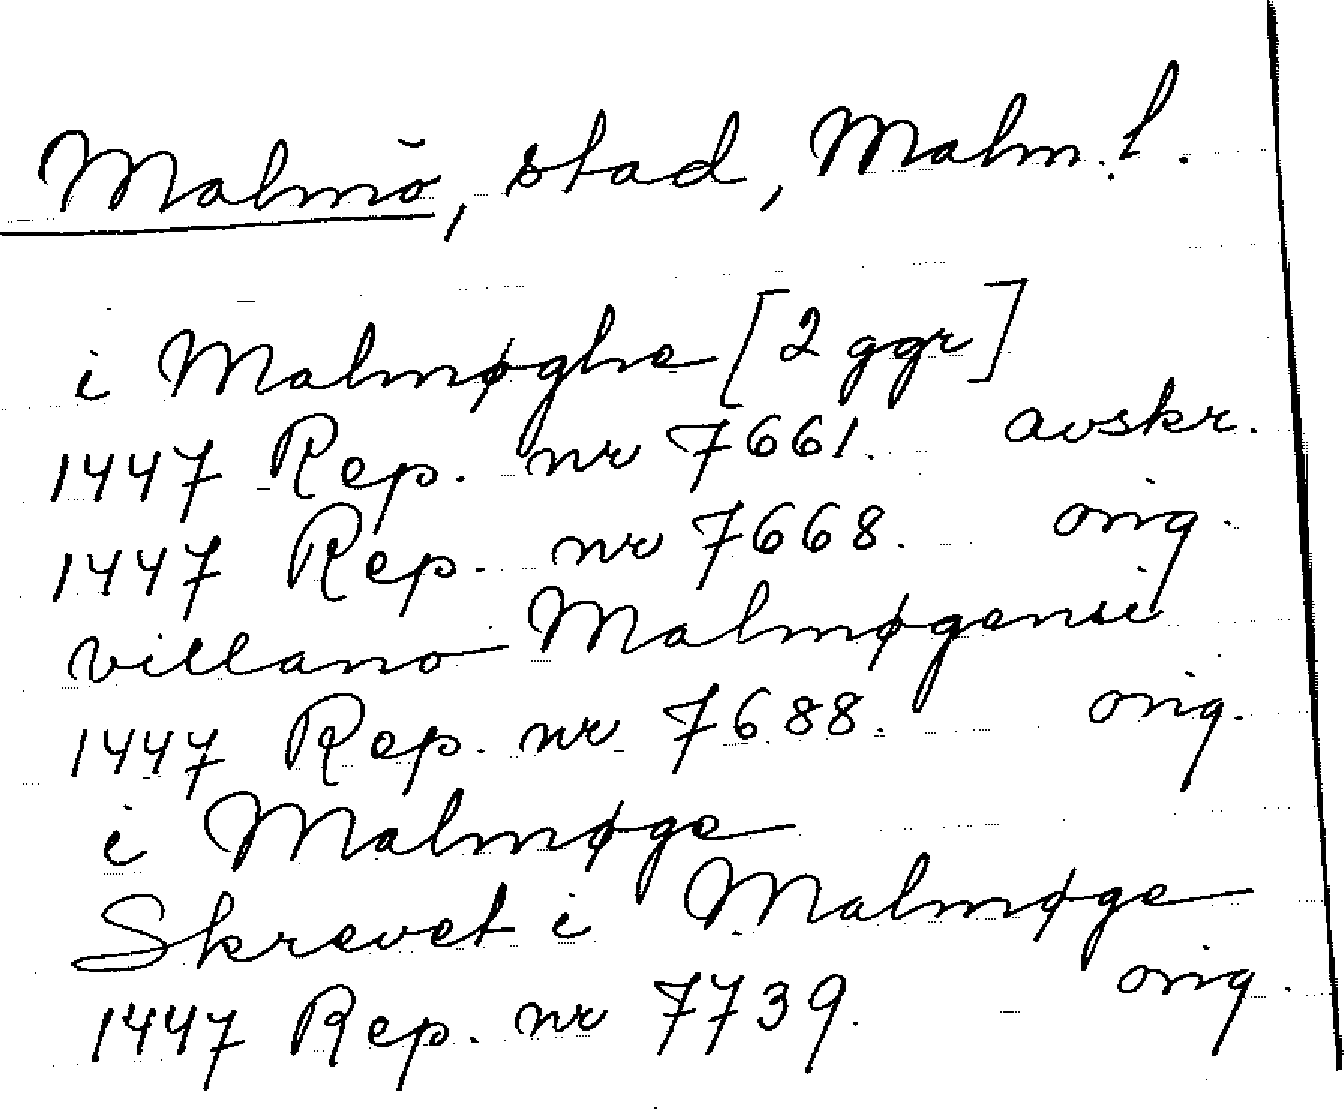 Malmö, stad, Malm. l.
i Malmøghe [2 ggr]
1447 Rep. nr 7661. avskr.
1447 Rep. nr 7668. orig.
villano Malmøgensi
1447 Rep. nr 7688. orig.
i Malmøge
Skrevet i Malmøge
1447 Rep. nr 7739. orig.